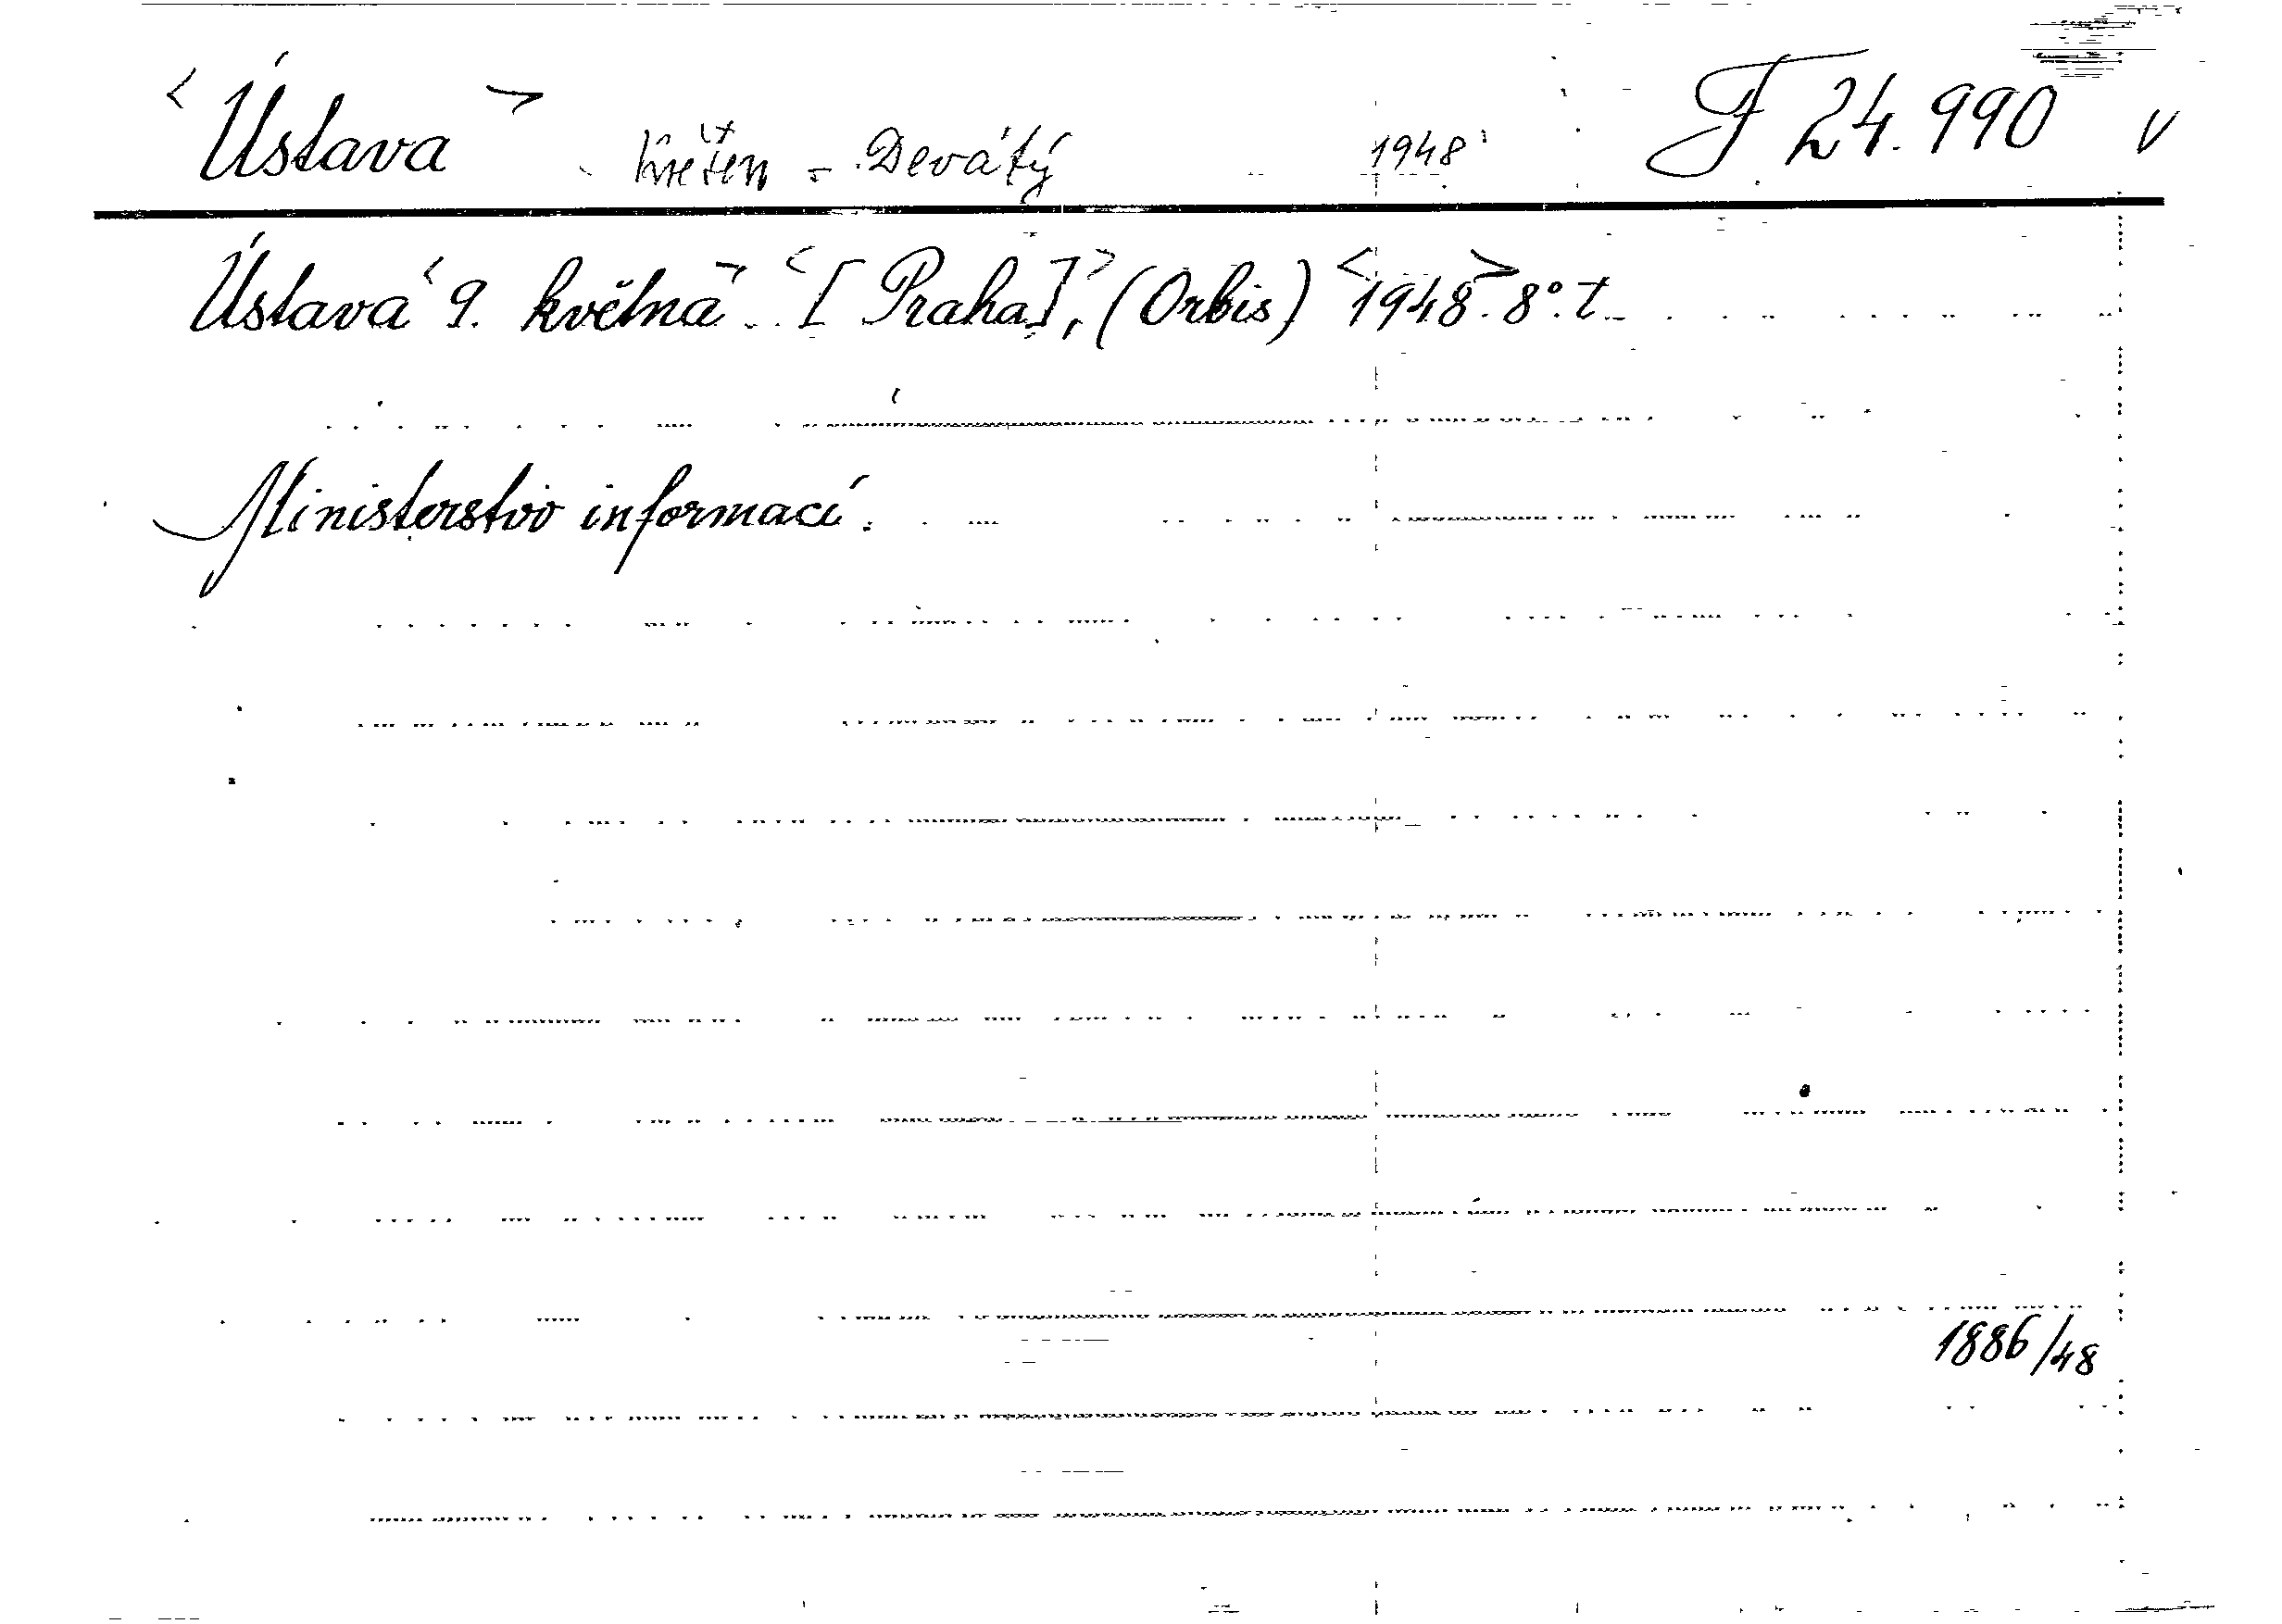 <Ústava> květen - Devátý 1948 F 24.990 v
Ústava <9. května> <[Praha]>, (Orbis) <1948>. 8°. t.
Ministerstvo informací.
1886/48